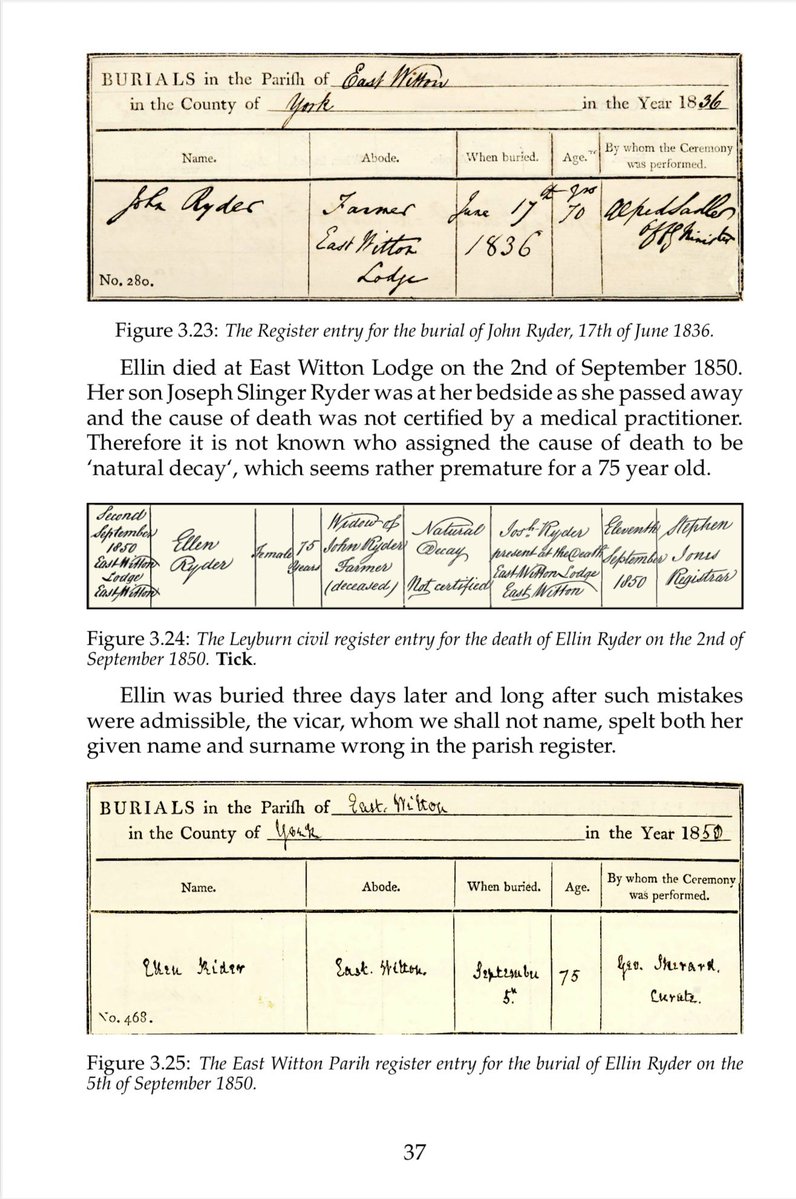 BURIALS in the Pariſh of East Witton
in the County of York in the Year 1836
Name. Abode. When buried. Age. By whom the Ceremony was performed.
John Ryder Farmer June 17th yrs
East Witton 1836 70 Alfred Sadler
Lodge Offg Minister
No. 280.
Figure 3.23: The Register entry for the burial of John Ryder, 17th of June 1836.
Ellin died at East Witton Lodge on the 2nd of September 1850.
Her son Joseph Slinger Ryder was at her bedside as she passed away
and the cause of death was not certified by a medical practitioner.
Therefore it is not known who assigned the cause of death to be
‘natural decay‘, which seems rather premature for a 75 year old.
Second
September
1850
East Witton
Lodge
East Witton
Ellen
Ryder
Female
75
Years
Widow of
John Ryder
Farmer
(deceased)
Natural
Decay
Not certified
Josh. Ryder
present at the Death
East Witton Lodge
East Witton
Eleventh
September
1850
Stephen
Jones
Registrar
Figure 3.24: The Leyburn civil register entry for the death of Ellin Ryder on the 2nd of
September 1850. Tick.
Ellin was buried three days later and long after such mistakes
were admissible, the vicar, whom we shall not name, spelt both her
given name and surname wrong in the parish register.
BURIALS in the Pariſh of East. Witton
in the County of York in the Year 1850
Name. Abode. When buried. Age. By whom the Ceremony was performed.
Ellen Rider East. Witton. September 75 Geo.
5th Curate.
No. 468.
Figure 3.25: The East Witton Parih register entry for the burial of Ellin Ryder on the
5th of September 1850.
37